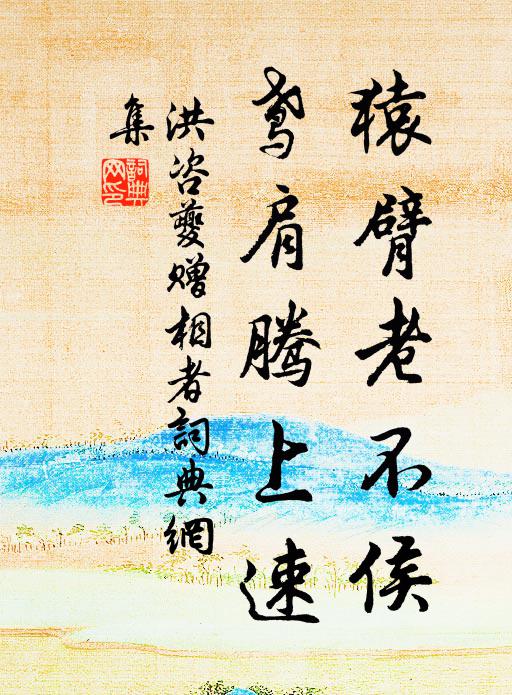 猿臂老不侯
鸢肩腾上速
洪咨夔赠相者詞典網
集
詞典網印